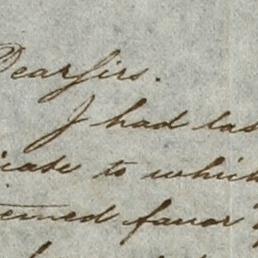 Dear Sirs.
I had las
icate to which
teemed favor